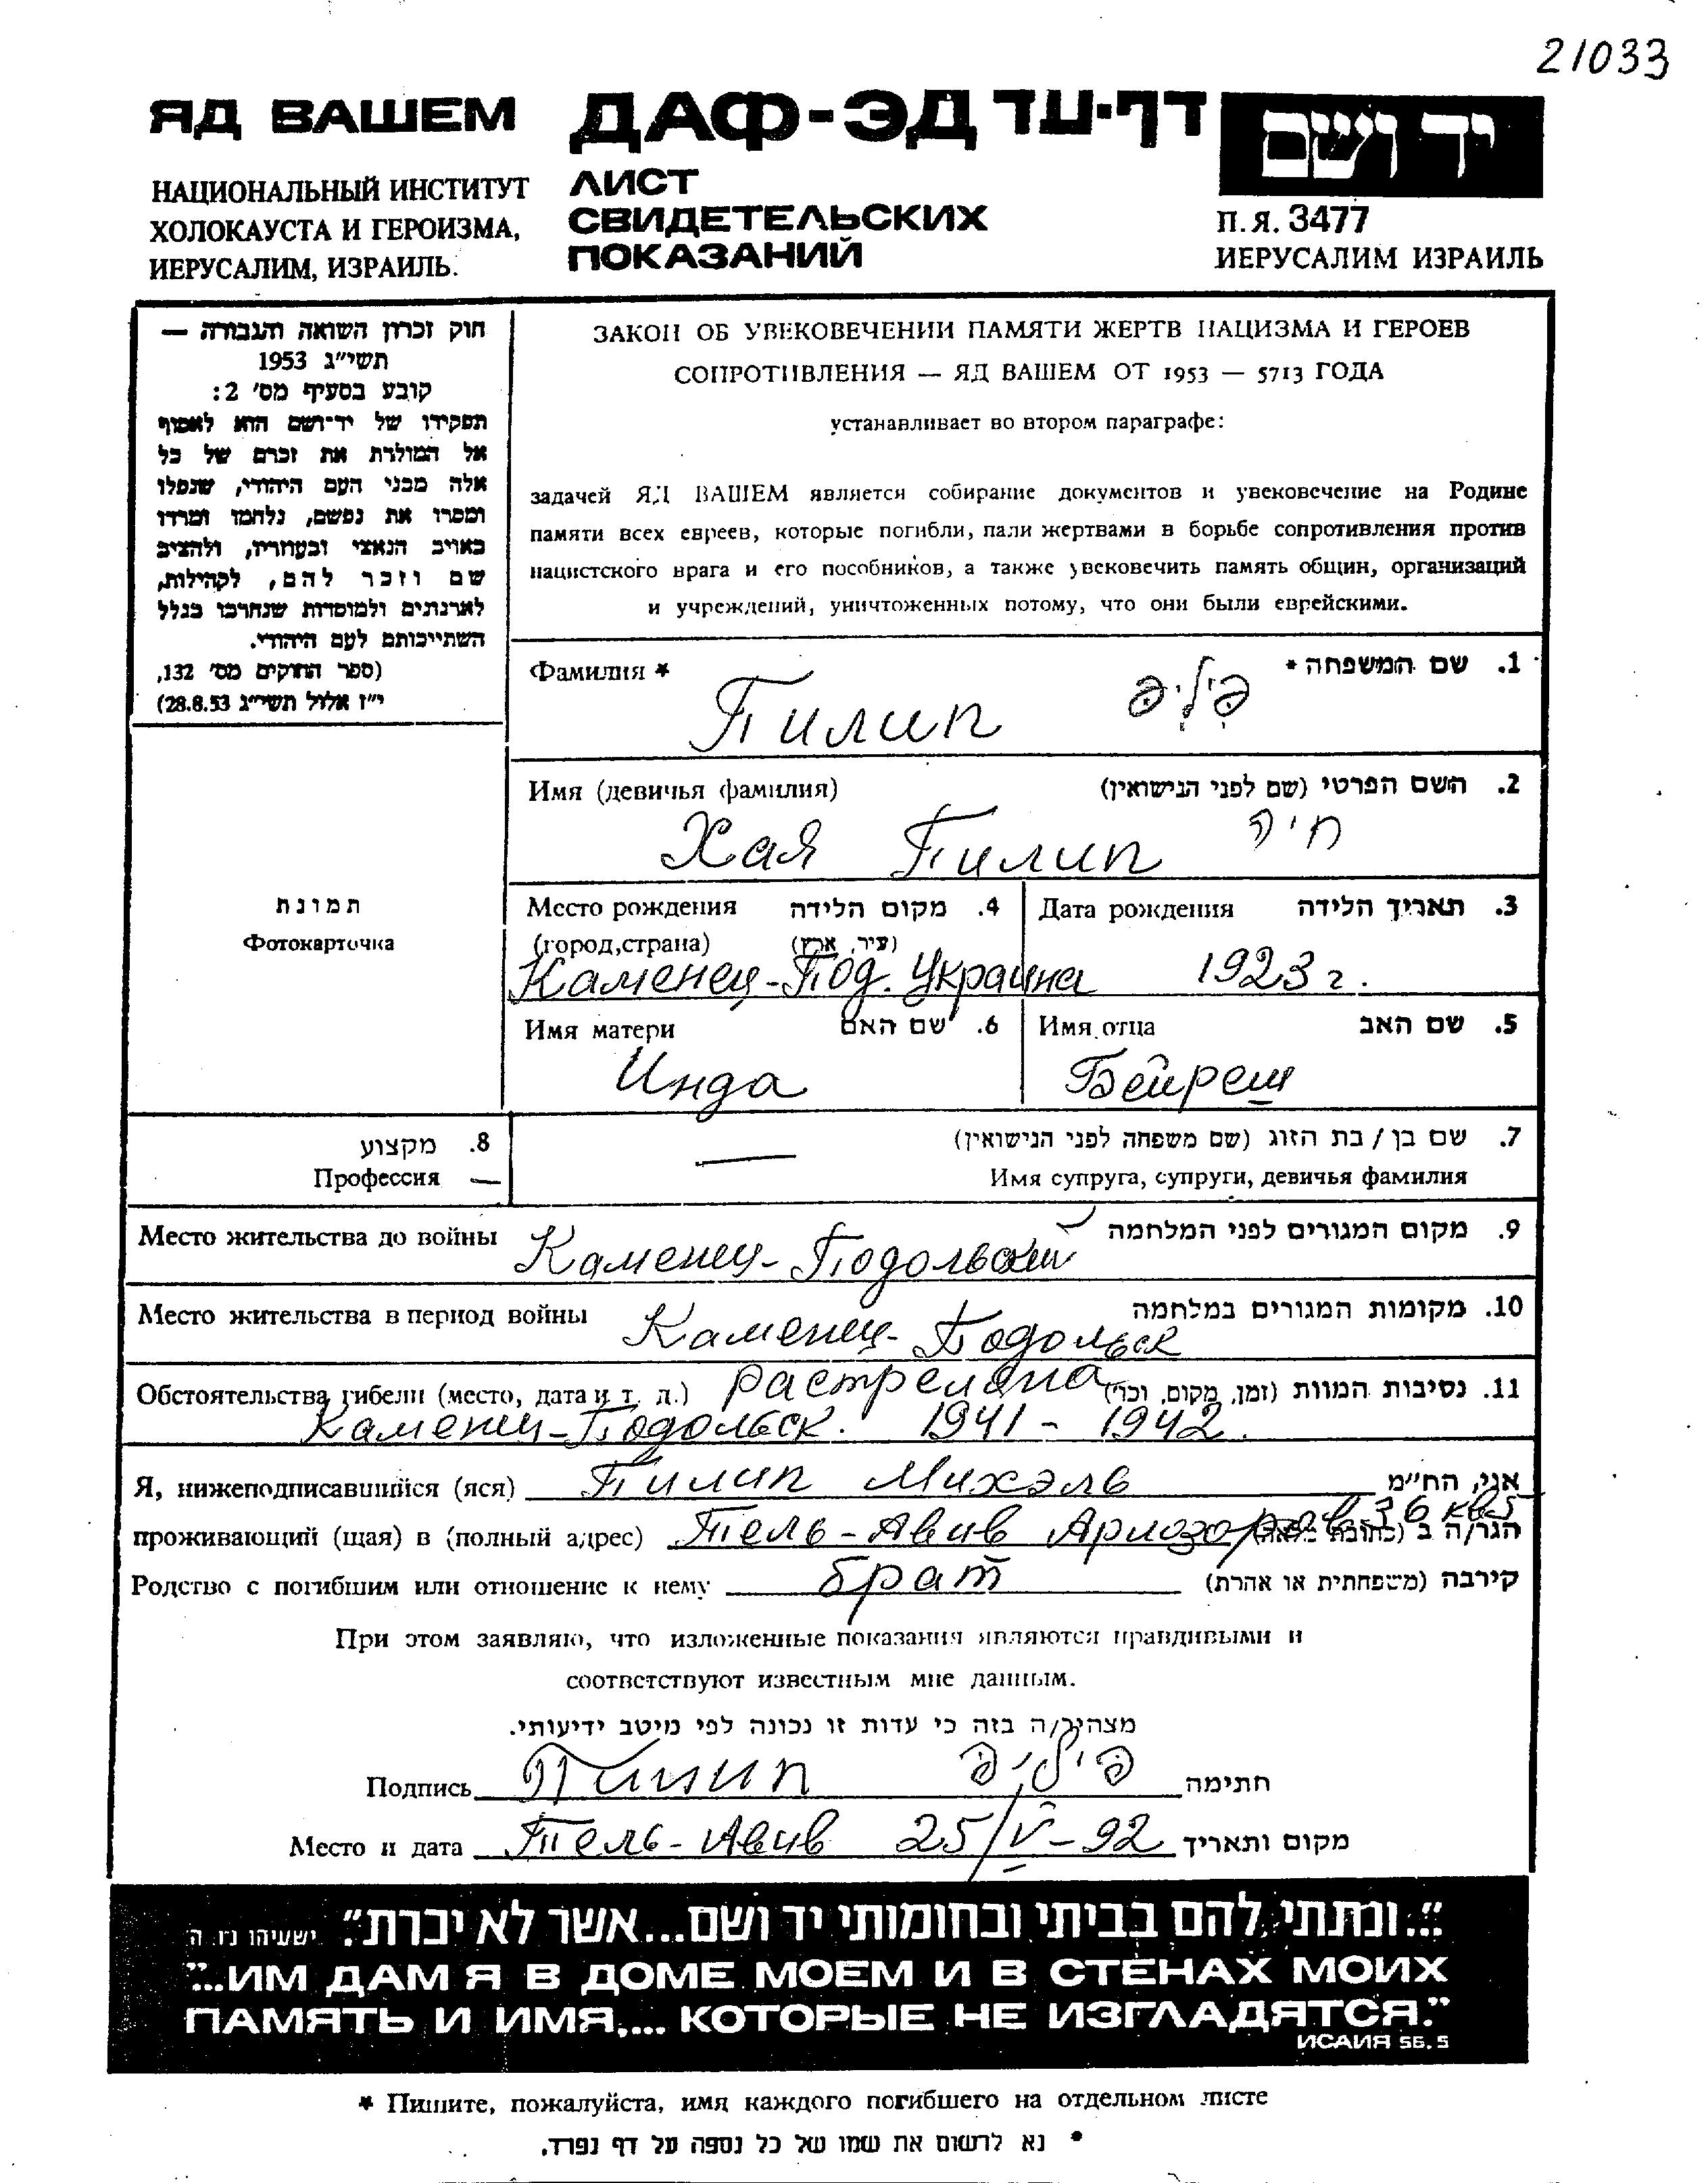 21033
ЯД ВАШЕМ ДАФ-ЭД דף-עד יד ושם
НАЦИОНАЛЬНЫЙ ИНСТИТУТ
ХОЛОКАУСТА И ГЕРОИЗМА,
ИЕРУСАЛИМ, ИЗРАИЛЬ.
ЛИСТ
СВИДЕТЕЛЬСКИХ
ПОКАЗАНИЙ
П.Я. 3477
ИЕРУСАЛИМ ИЗРАИЛЬ
חוק זכרון השואה והגבורה —
תשי״ג 1953
קובע בסעיף מס׳ 2:
תפקידו של יד-ושם הוא לאסוף
אל המולדת את זכרם של כל
אלה מבני העם היהודי, שנפלו
ומסרו את נפשם, נלחמו ומרדו
באויב הנאצי ובעוזריו, ולהציב
שם וזכר להם, לקהילות,
לארגונים ולמוסדות שנחרבו בגלל
השתייכותם לעם היהודי.
(ספר החוקים מס׳ 132,
י״ז אלול תשי״ג 28.8.53)
ЗАКОН ОБ УВЕКОВЕЧЕНИИ ПАМЯТИ ЖЕРТВ НАЦИЗМА И ГЕРОЕВ
СОПРОТИВЛЕНИЯ — ЯД ВАШЕМ ОТ 1953 — 5713 ГОДА
устанавливает во втором параграфе:
задачей ЯД ВАШЕМ является собирание документов и увековечение на Родине
памяти всех евреев, которые погибли, пали жертвами в борьбе сопротивления против
нацистского врага и его пособников, а также увековечить память общин, организаций
и учреждений, уничтоженных потому, что они были еврейскими.
Фамилия * 1. שם המשפחה *
Пилип פיליפ
Имя (девичья фамилия) 2. השם הפרטי (שם לפני הנישואין)
Хая Пилип חיה
תמונת
Фотокарточка
Место рождения 4. מקום הלידה
(город,страна) (עיר, ארץ)
Каменец-Под. Украина
Дата рождения 3. תאריך הלידה
1923 г.
Имя матери 6. שם האם
Инда
Имя отца 5. שם האב
Бейреш
8. מקצוע
Профессия —
7. שם בן / בת הזוג (שם משפחה לפני הנישואין)
—
Имя супруга, супруги, девичья фамилия
Место жительства до войны Каменец-Подольский 9. מקום המגורים לפני המלחמה
Место жительства в период войны Каменец-Подольск 10. מקומות המגורים במלחמה
Обстоятельства гибели (место, дата и т. д.) растреляна 11. נסיבות המוות (זמן, מקום, וכו׳)
Каменец-Подольск. 1941 - 1942.
Я, нижеподписавшийся (яся) Пилип Михэль אני, הח״מ
проживающий (щая) в (полный адрес) Тель-Авив Арлозоров 36 кв5 הגר/ה ב (כתובת מלאה)
Родство с погибшим или отношение к нему брат קירבה (משפחתית או אחרת)
При этом заявляю, что изложенные показания являются правдивыми и
соответствуют известным мне данным.
מצהיר/ה בזה כי עדות זו נכונה לפי מיטב ידיעותי.
Подпись Пилип פיליפ חתימה
Место и дата Тель-Авив 25/V-92 מקום ותאריך
״...ונתתי להם בביתי ובחומותי יד ושם...אשר לא יכרת״. ישעיהו נו, ה
"...ИМ ДАМ Я В ДОМЕ МОЕМ И В СТЕНАХ МОИХ
ПАМЯТЬ И ИМЯ,... КОТОРЫЕ НЕ ИЗГЛАДЯТСЯ."
ИСАИЯ 56.5
* Пишите, пожалуйста, имя каждого погибшего на отдельном листе
* נא לרשום את שמו של כל נספה על דף נפרד.